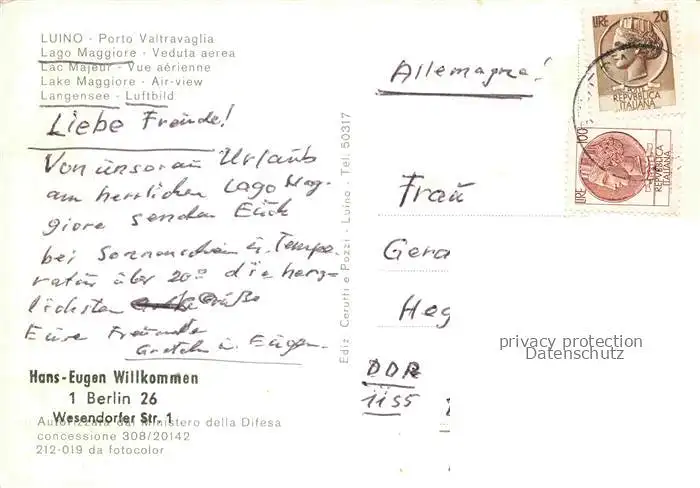 LUINO - Porto Valtravaglia
Lago Maggiore - Veduta aerea
Lac Majeur - Vue aérienne
Lake Maggiore - Air-view
Langensee - Luftbild
Liebe Freunde!
Von unserem Urlaub
am herrlichen Lago Mag-
giore senden Euch
bei Sonnenschein u. Tempe-
ratur über 20° die herz-
lichsten Grüße
Eure Freunde
Gretchen u. Eugen.
Hans-Eugen Willkommen
1 Berlin 26
Wesendorfer Str. 1
Autorizzata dal Ministero della Difesa
concessione 308/20142
212-019 da fotocolor
Ediz. Cerutti e Pozzi - Luino - Tel. 50317
Allemagna!
Frau
Gera
Heg
DDR
1155
LIRE 20
REPVBBLICA
ITALIANA
LIRE 100
REPVBBLICA
ITALIANA
privacy protection
Datenschutz